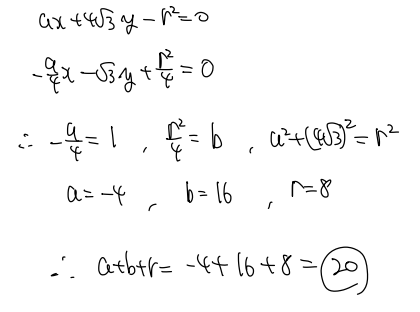 ax+4√3y-r²=0
-a/4x-√3y+r²/4=0
∴ -a/4=1, r²/4=b, a²+(4√3)²=r²
a=-4, b=16, r=8
∴ a+b+r= -4+16+8=20